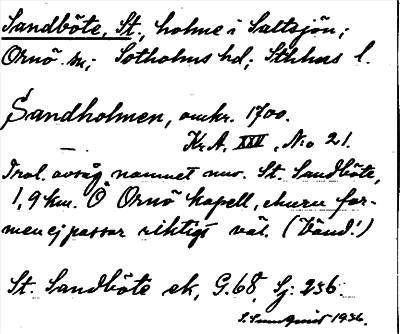 Sandböte, St., holme i Saltsjön;
Ornö sn; Sotholms hd; Sthlms l.
Sandholmen, omkr. 1700.
Kr.A. XXV, No 21.
Trol. avsåg namnet nuv. St. Sandböte,
1,9 km. O Ornö kapell, ehuru for-
men ej passar riktigt väl. (Vänd!)
St. Sandböte ek, G.68, Sj: 256.
1936.